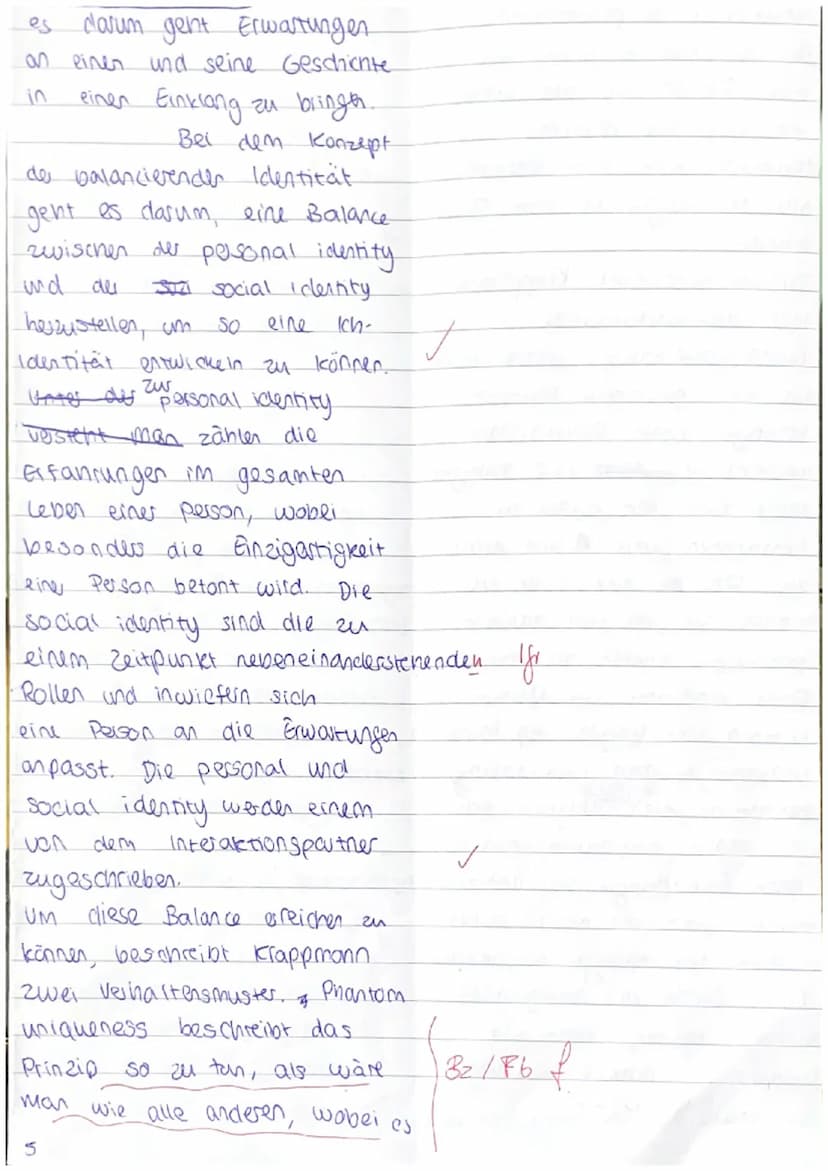 es darum geht Erwartungen
an einen und seine Geschichte
in einen Einklang zu bringen.
Bei dem Konzept
der balancierenden Identität
geht es darum, eine Balance
zwischen der personal identity
und der social identity
herzustellen, um so eine Ich-
Identität entwickeln zu können.
Unter der zur personal identity
versteht man zählen die
Erfahrungen im gesamten
Leben einer Person, wobei
besonders die Einzigartigkeit
einer Person betont wird. Die
social identity sind die zu
einem Zeitpunkt nebeneinanderstehenden
Rollen und inwiefern sich
eine Person an die Erwartungen
anpasst. Die personal und
social identity werden einem
von dem Interaktionspartner
zugeschrieben.
Um diese Balance erreichen zu
können, beschreibt Krappmann
zwei Verhaltensmuster. Phantom
uniqueness beschreibt das
Prinzip so zu tun, als wäre
man wie alle anderen, wobei es
Bz / Fb f
5